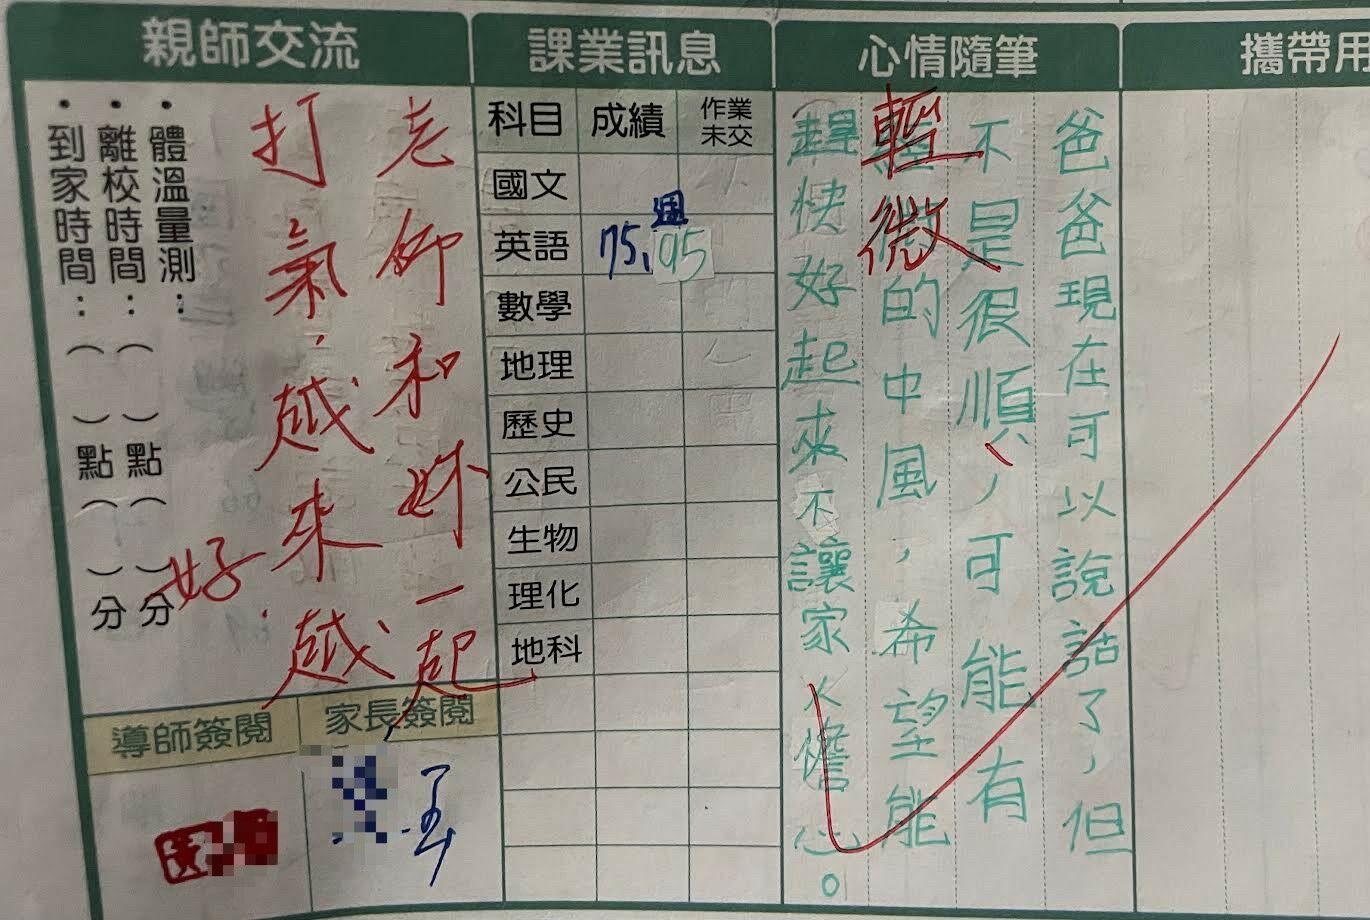 親師交流
・體溫量測：
・離校時間：（ ）點（ ）分
・到家時間：（ ）點（ ）分
老師和妳一起
打氣，越來越
好
導師簽閱
家長簽閱
課業訊息
科目 成績 作業未交
國文
英語 75, 週95
數學
地理
歷史
公民
生物
理化
地科
心情隨筆
爸爸現在可以說話了，但
不是很順，可能有
輕微的中風，希望能
趕快好起來不讓家人擔心。
攜帶用